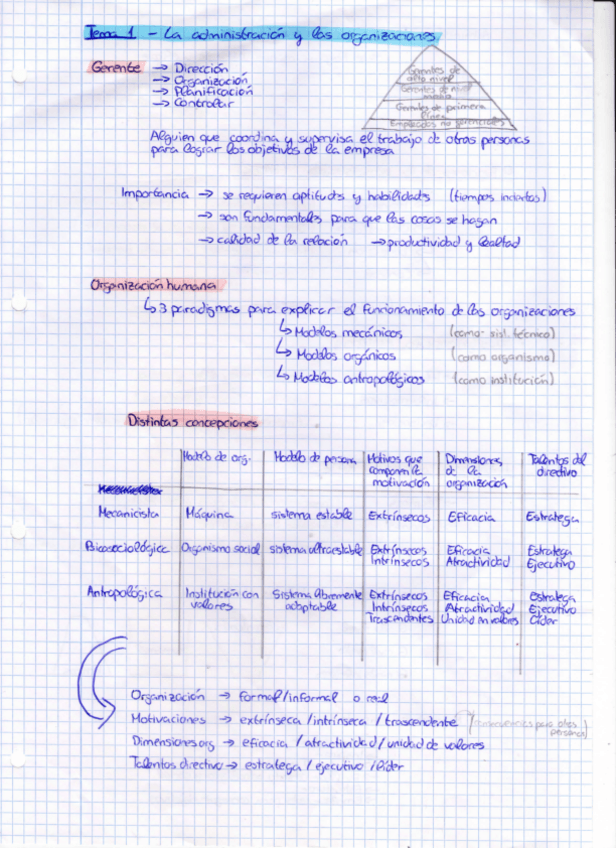 Tema 1 - La administración y las organizaciones
Gerente → Dirección
→ Organización
→ Planificación
→ Controlar
Gerentes de alto nivel
Gerentes de nivel medio
Gerentes de primera línea
Empleados no gerenciales
Alguien que coordina y supervisa el trabajo de otras personas
para lograr los objetivos de la empresa
Importancia → se requieren aptitudes y habilidades (tiempos inciertos)
→ son fundamentales para que las cosas se hagan
→ calidad de la relación → productividad y lealtad
Organización humana
↳ 3 paradigmas para explicar el funcionamiento de las organizaciones
↳ Modelos mecánicos (como sist. técnico)
↳ Modelos orgánicos (como organismo)
↳ Modelos antropológicos (como institución)
Distintas concepciones
Modelo de org. Modelo de persona Motivos que componen la motivación Dimensiones de la organización Talentos del directivo
Mecanicista Máquina sistema estable Extrínsecos Eficacia Estratega
Psicosociológica Organismo social sistema ultraestable Extrínsecos Intrínsecos Eficacia Atractividad Estratega Ejecutivo
Antropológica Institución con valores Sistema libremente adaptable Extrínsecos Intrínsecos Trascendentes Eficacia Atractividad Unidad en valores Estratega Ejecutivo Líder
Organización → formal/informal o real
Motivaciones → extrínseca/intrínseca/trascendente (consecuencias para otras personas)
Dimensiones org → eficacia/atractividad/unidad de valores
Talentos directivo → estratega/ejecutivo/líder